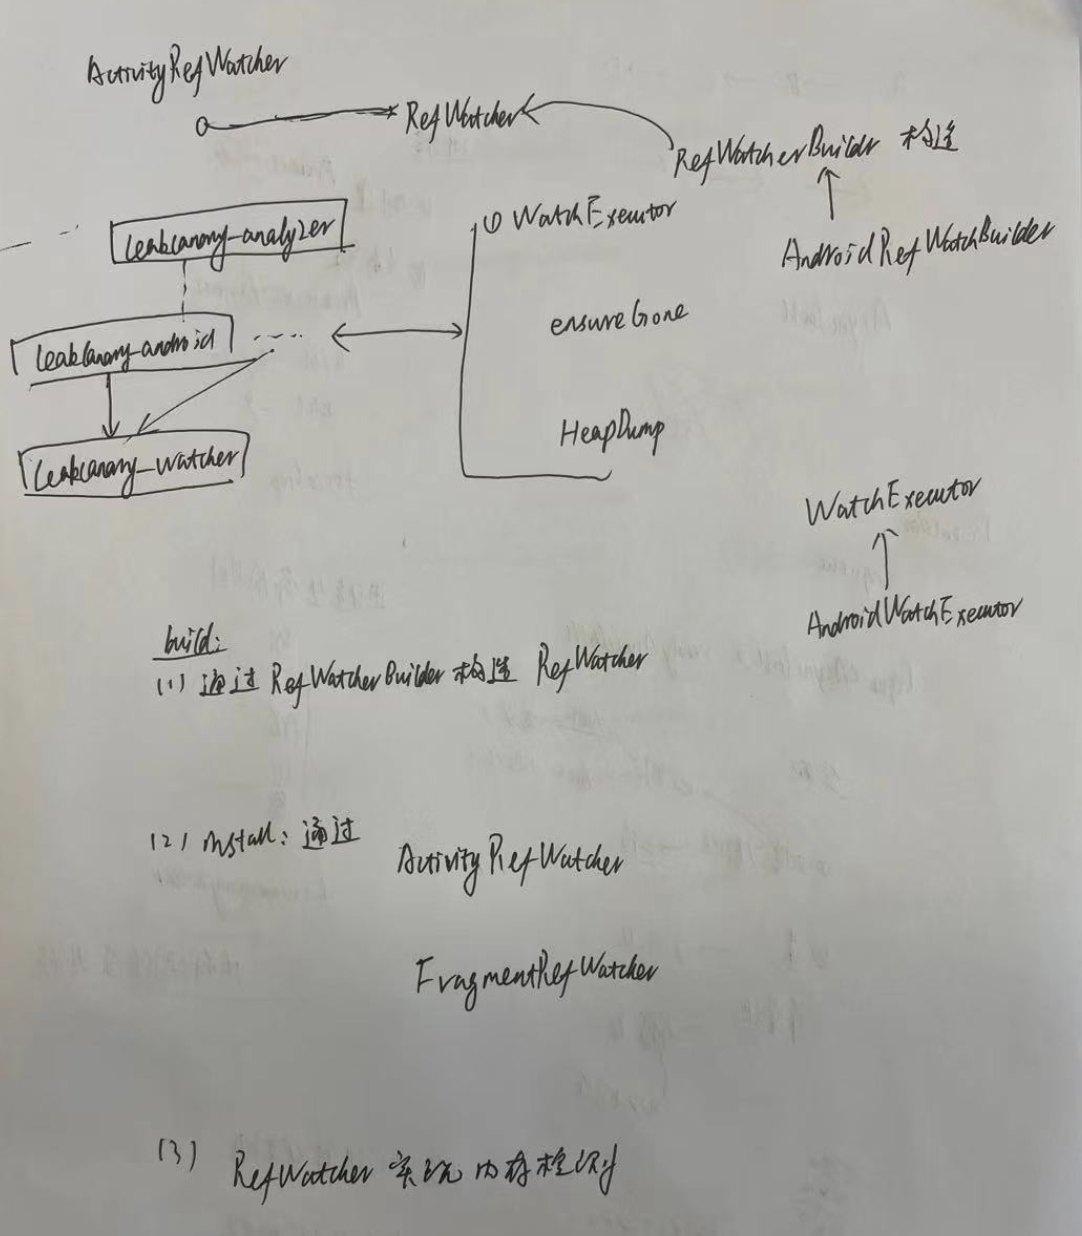 ActivityRefWatcher
RefWatcher
RefWatcherBuildr 构造
AndroidRefWatchBuilder
leakcanary-analyzer
① WatchExecutor
ensureGone
leakcanary-android
HeapDump
leakcanary-watcher
WatchExecutor
AndroidWatchExecutor
build:
(1) 通过 RefWatcherBuilder 构造 RefWatcher
(2) install: 通过
ActivityRefWatcher
FragmentRefWatcher
(3) RefWatcher 实现 内存检测